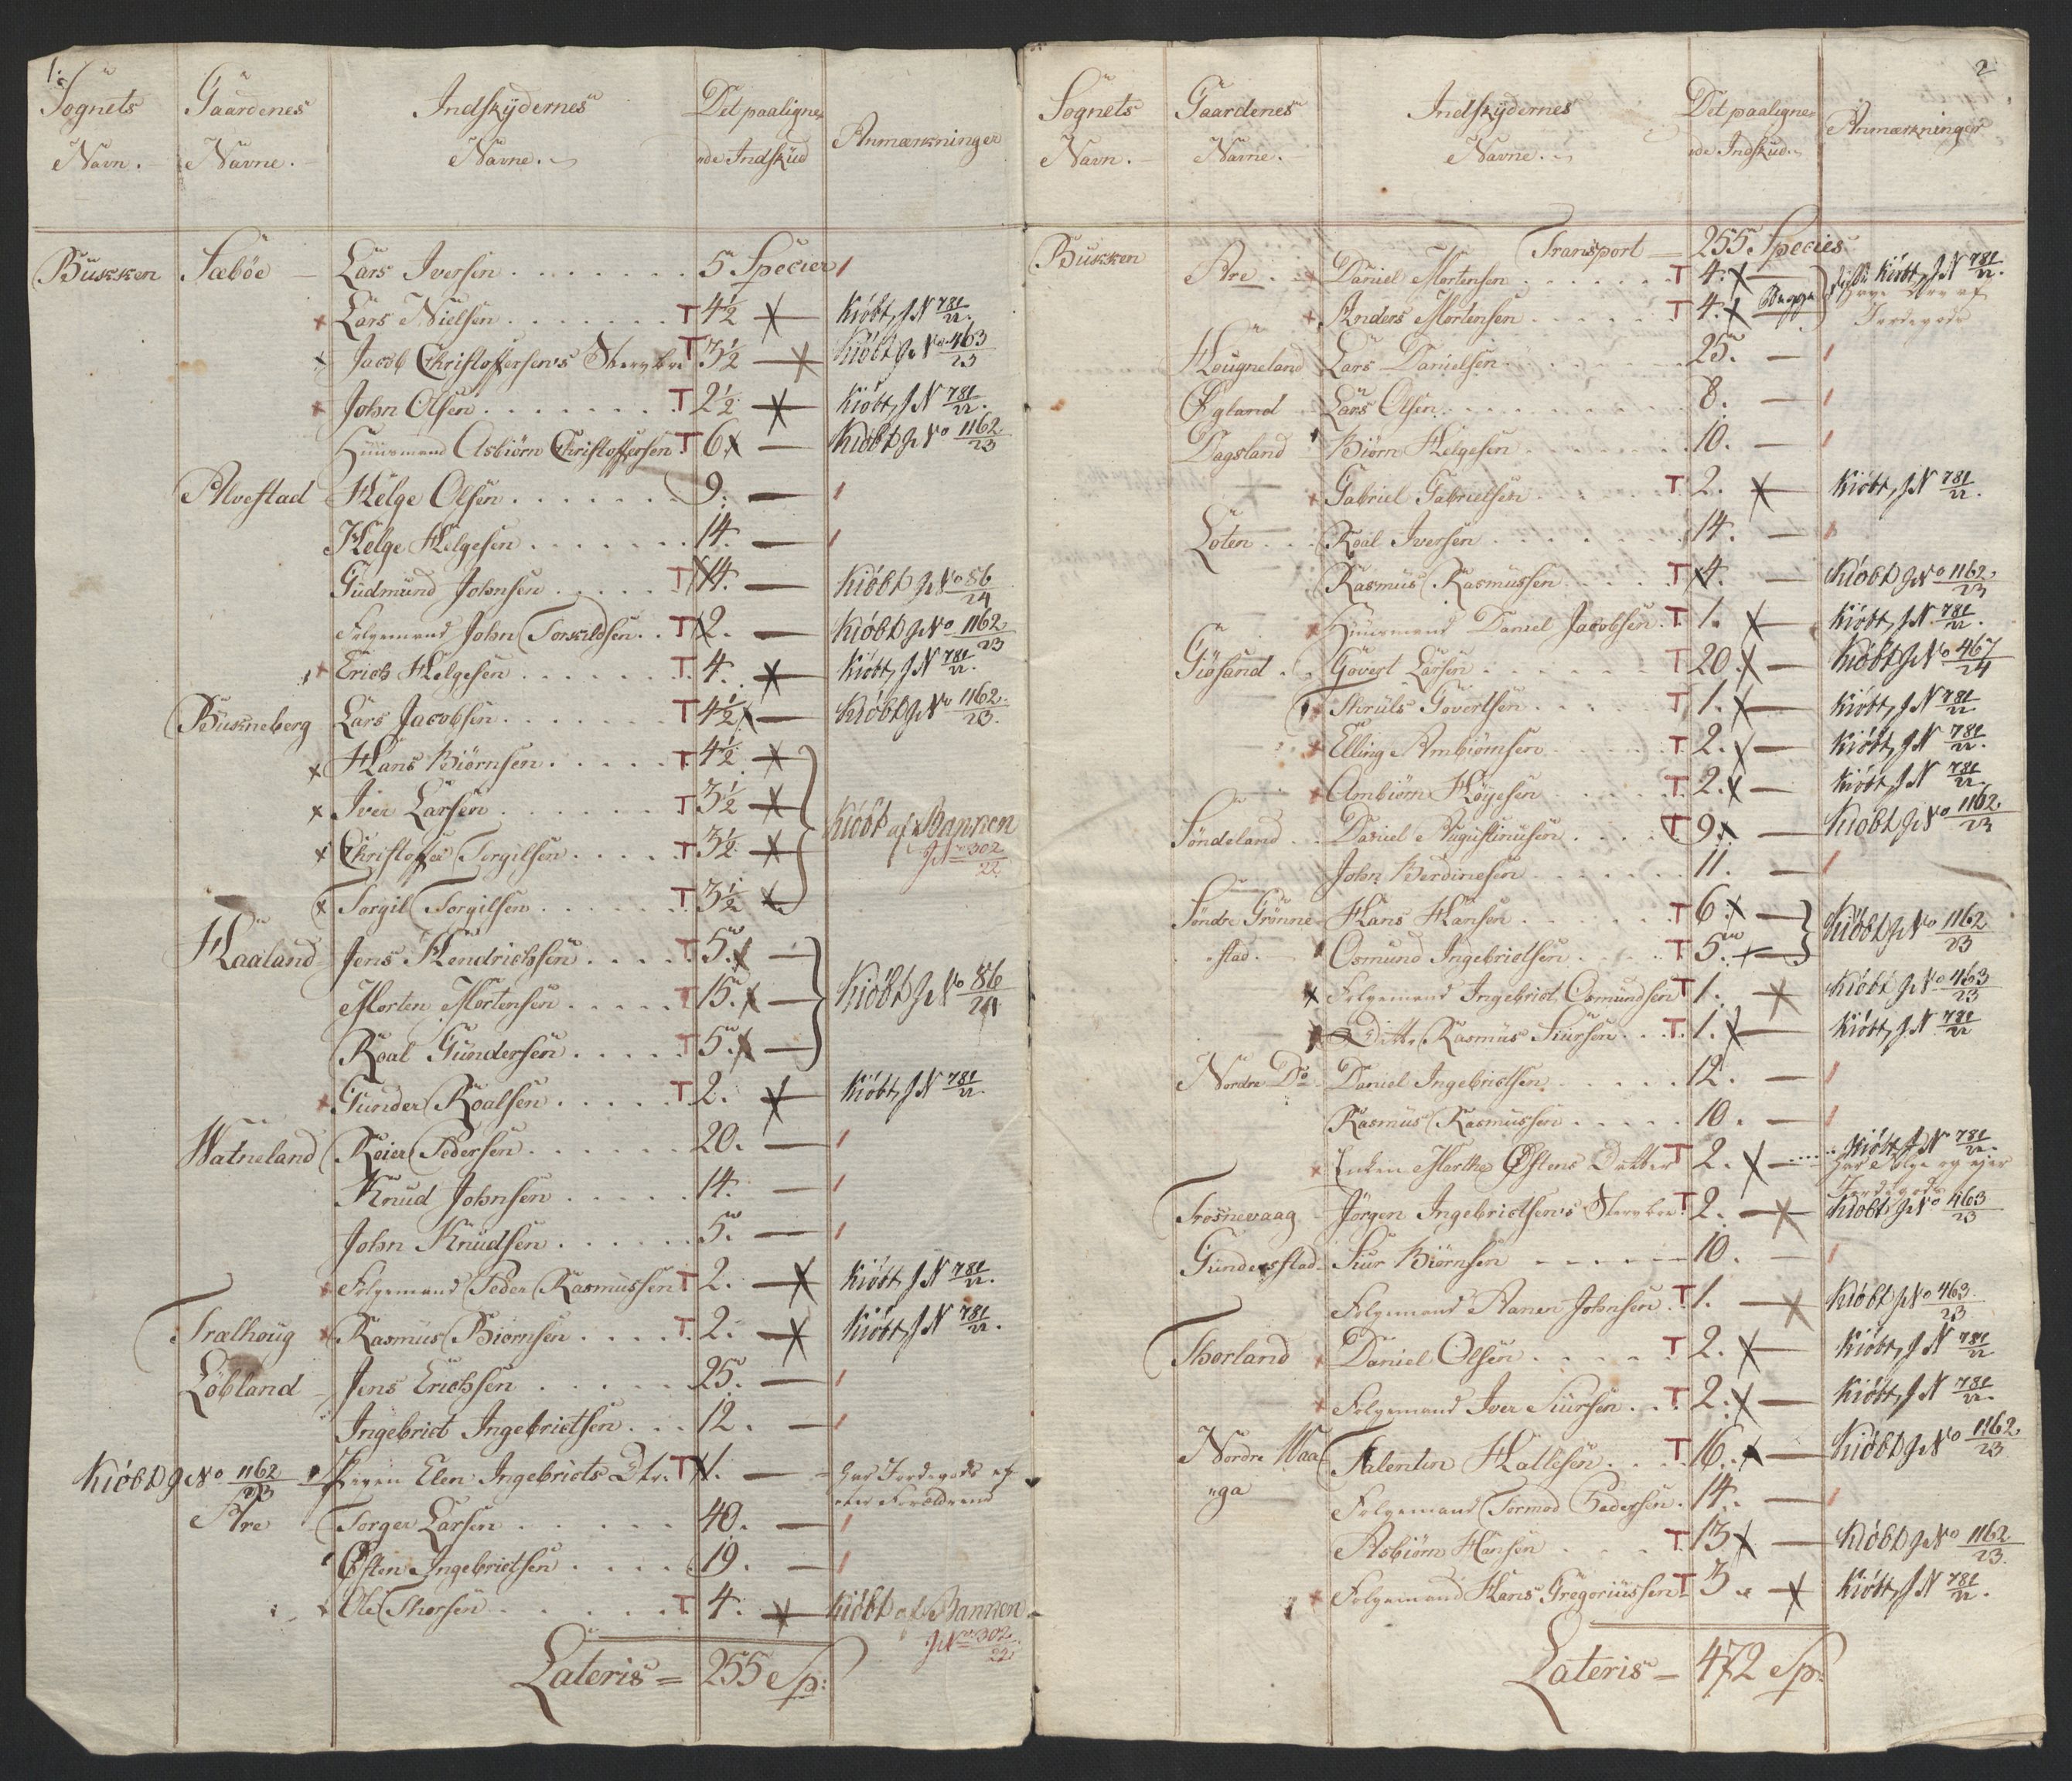 1.
Sognets Navn. Gaardenes Navne. Indskydernes Navne. Det paaligne- nde Indskud Anmærkninger
Bukken Sæböe Lars Iversen 5 Species
Lars Nielsen T 4½ Kiöbt, J N 781/22.
Jacob Christophersens Stervboe T 3½ Kiöbt J No 463/23
John Olsen T 2½ Kiöbt, J N 781/22.
Huusmand Asbiörn Christoffersen T 6 Kiöbt J No 1162/23
Alvestad Helge Olsen 9.
Helge Helgesen 14.
Gudmund Johnsen T 14. Kiöbt J No 86/24
Folgemand John Torkildsen T 2. Kiöbt J No 1162/23
Erich Helgesen T 4. Kiöbt, J N 781/22.
Bukneberg Lars Jacobsen T 4½ Kiöbt J No 1162/23.
Hans Biörnsen T 4½
Iver Larsen T 3½ Kiöbt af Banken
Christoffer Torgilsen T 3½ J No 302/22
Torgil Torgilsen T 3½
Haaland Jens Hendrichsen T 5.
Morten Mortensen T 15. Kiöbt J No 86/24
Roal Gundersen T 5.
Gunder Roalsen T 2. Kiöbt, J N 781/22.
Watneland Reier Pedersen 20.
Knud Johnsen 14.
John Knudsen 5.
Folgemand Peder Rasmussen T 2. Kiöbt J N 781/22.
Trælhoug Rasmus Biörnsen T 2. Kiöbt, J N 781/22.
Löbland Jens Erichsen 25.
Ingebrict Ingebrictsen 12.
Kiöbt J No 1162/23 Pigen Elen Ingebricts Dtr. T 1. Har Jordegods ef-
ter Forældrene
Are Torger Larsen 40.
Östen Ingebrictsen 19.
Ole Thorsen T 4. Kiöbt af Banken
J No 302/22
Lateris = 255 Sp:
2
Sognets Navn. Gaardenes Navne. Indskydernes Navne. Det paaligne- nde Indskud. Anmærkninger
Bukken Transport 255. Species
Are Daniel Mortensen T 4. Kiöbt, J N 781/22.
Anders Mortensen T 4. Begge Jordegods
Hougneland Lars Danielsen 25.
Øgland Lars Olsen 8.
Dagsland Biörn Helgesen 10.
Gabriel Gabrielsen T 2. Kiöbt, J N 781/22.
Loten Roal Iversen 14.
Rasmus Rasmussen T 4. Kiöbt J No 1162/23
Huusmand Daniel Jacobsen T 1. Kiöbt, J N 781/22.
Giösund Govert Larsen T 20. Kiöbt J No 467/24
Thruls Govertsen T 1. Kiöbt, J N 781/22
Elling Ambiörnsen T 2. Kiöbt, J N 781/22.
Ambiörn Höyesen T 2. Kiöbt, J N 781/22.
Söndeland Daniel Augustinusen T 9. Kiöbt J No 1162/23
John Berdinesen 11.
Söndre Grönne- Hans Hansen T 6. Kiöbt J No 1162/23
stad. Osmund Ingebrictsen T 5.
Folgemand Ingebrict Osmundsen T 1. Kiöbt J No 463/23
Ditto Rasmus Siursen T 1. Kiöbt, J N 781/22
Nordre Do Daniel Ingebrictsen 12.
Rasmus Rasmussen 10.
Enken Marthe Östens Datter T 2. Kiöbt J N 781/22.
Jordegods
Trosnevaag Jörgen Ingebrictsens Stervboe T 2. Kiöbt J No 463/23
Gunderstad Siur Biörnsen 10.
Folgemand Aanen Johnsen T 1. Kiöbt J No 463/23
Thorland Daniel Olsen T 2. Kiöbt, J N 781/22
Folgemand Iver Siursen T 2. Kiöbt, J N 781/22.
Nordre Waa Falentin Hallesen T 16. Kiöbt J No 1162/23
"ga Folgemand Tormod Pedersen 14.
Asbiörn Hansen T 13 Kiöbt J No 1162/23.
Folgemand Hans Gregoriussen T 3 Kiöbt, J N 781/22.
Lateris = 472 Sp: